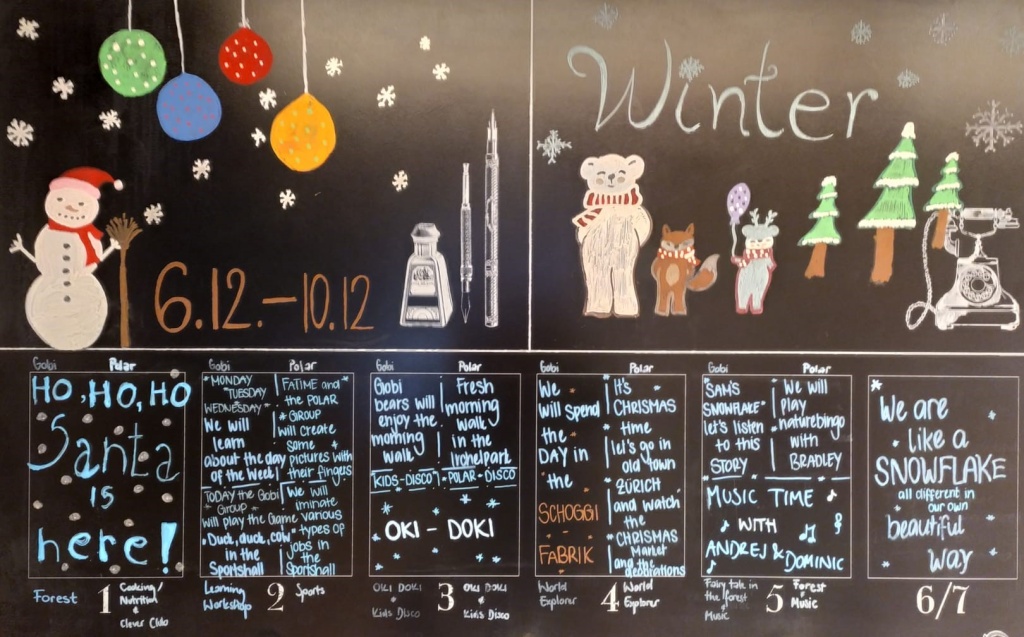 Winter
6.12.-10.12
Gobi Polar
HO, HO, HO
Santa
is
here!
Forest
1
Cooking/
Nutrition
&
Clever Club
Gobi Polar
"MONDAY
TUESDAY
WEDNESDAY"
We will
learn
about the day
of the week!
FATIME and
the POLAR
GROUP
will create
some
pictures with
their fingers
TODAY the Gobi
Group
will play the Game
"Duck, duck, cow"
in the
Sportshall
We will
iminate
various
types of
jobs in
the
Sportshall
Learning
Workshop
2
Sports
Gobi Polar
Gobi
bears will
enjoy the
morning
walk
Fresh
morning
walk
in the
Irchelpark
KIDS-DISCO POLAR-DISCO
OKI - DOKI
OKI DOKI
Kids Disco
3
OKI DOKI
&
Kids Disco
Gobi Polar
We
will spend
the
DAY in
the
SCHOGGI
-
FABRIK
It's
CHRISMAS
time
let's go in
old town
ZÜRICH
and watch
the
CHRISMAS
Market
and the decorations
World
Explorer
4
World
Explorer
Gobi Polar
"SAM'S
SNOWFLAKE"
let's listen
to this
STORY
We will
play
naturebingo
with
BRADLEY
MUSIC TIME
WITH
ANDREJ & DOMINIC
Fairy tale in
the forest
&
Music
5
Forest
&
Music
We are
like a
SNOWFLAKE
all different in
our own
beautiful
way
6/7